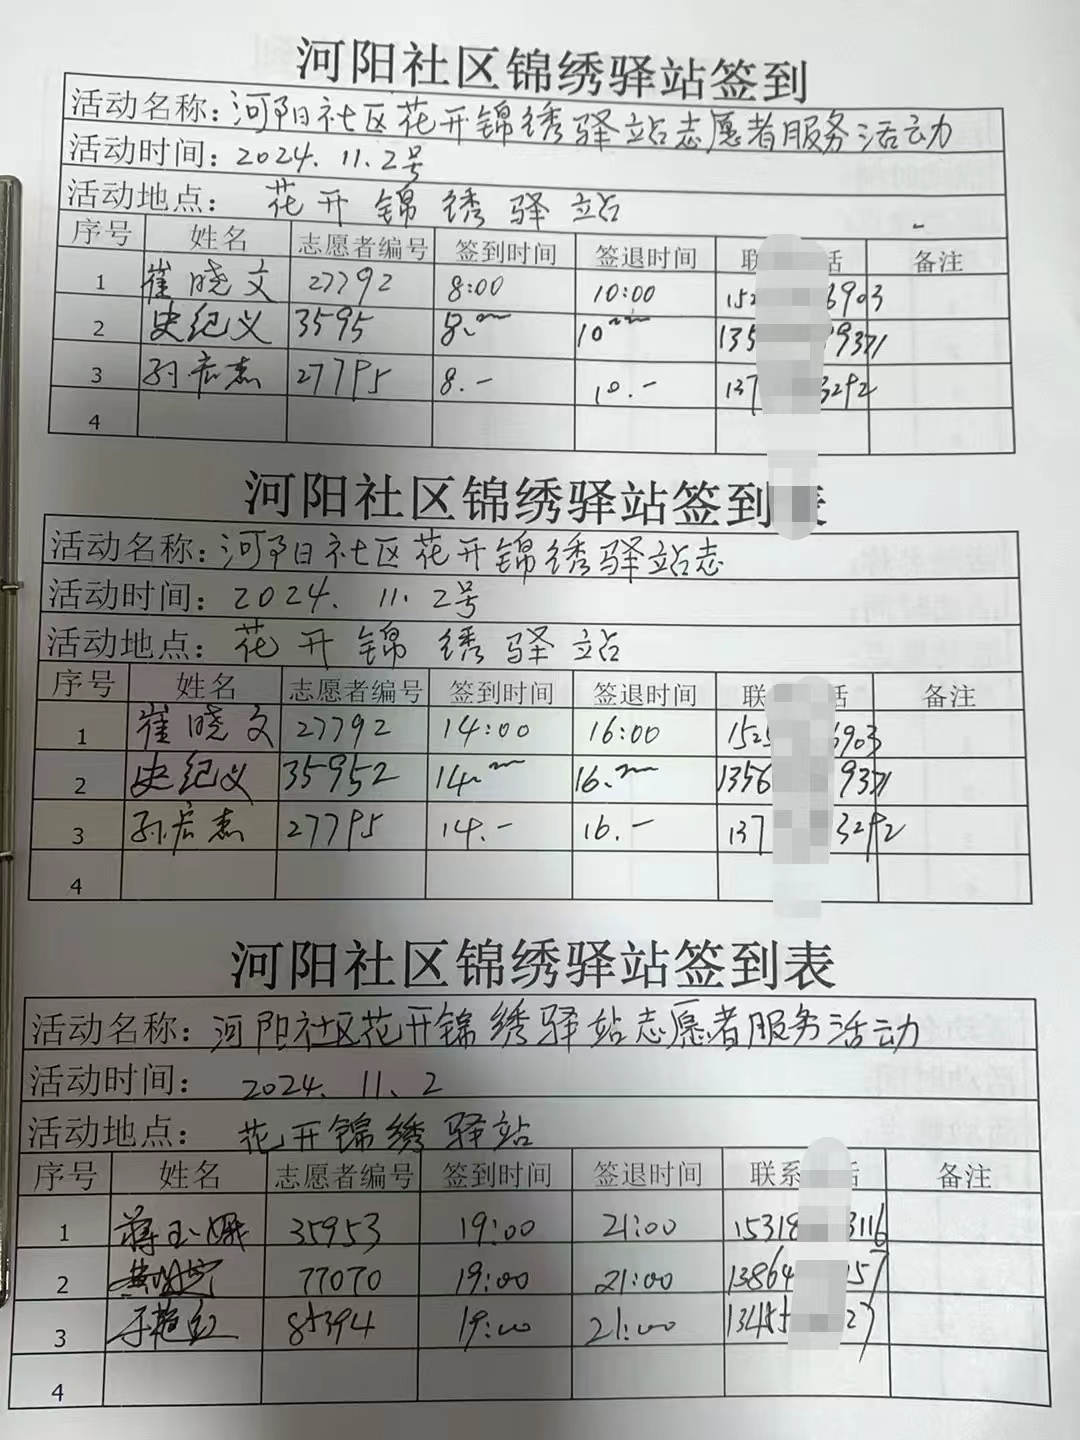 河阳社区锦绣驿站签到
活动名称：河阳社区花开锦绣驿站志愿者服务活动
活动时间：2024.11.2号
活动地点：花开锦绣驿站
序号 姓名 志愿者编号 签到时间 签退时间 联 话 备注
1 崔晓文 27792 8:00 10:00 152 6903
2 史纪义 3595 8. 10 135 9371
3 孙宏杰 27795 8.- 10.- 137 3292
4
河阳社区锦绣驿站签到表
活动名称：河阳社区花开锦绣驿站志
活动时间：2024.11.2号
活动地点：花开锦绣驿站
序号 姓名 志愿者编号 签到时间 签退时间 联 话 备注
1 崔晓文 27792 14:00 16:00 152 6903
2 史纪义 35952 14. 16. 1356 9371
3 孙宏杰 27795 14.- 16.- 137 3292
4
河阳社区锦绣驿站签到表
活动名称：河阳社区花开锦绣驿站志愿者服务活动
活动时间：2024.11.2
活动地点：花开锦绣驿站
序号 姓名 志愿者编号 签到时间 签退时间 联系 话 备注
1 蒋玉娥 35953 19:00 21:00 15318 3116
2 77070 19:00 21:00 13864 57
3 于艳红 85394 19:00 21:00 13455 27
4